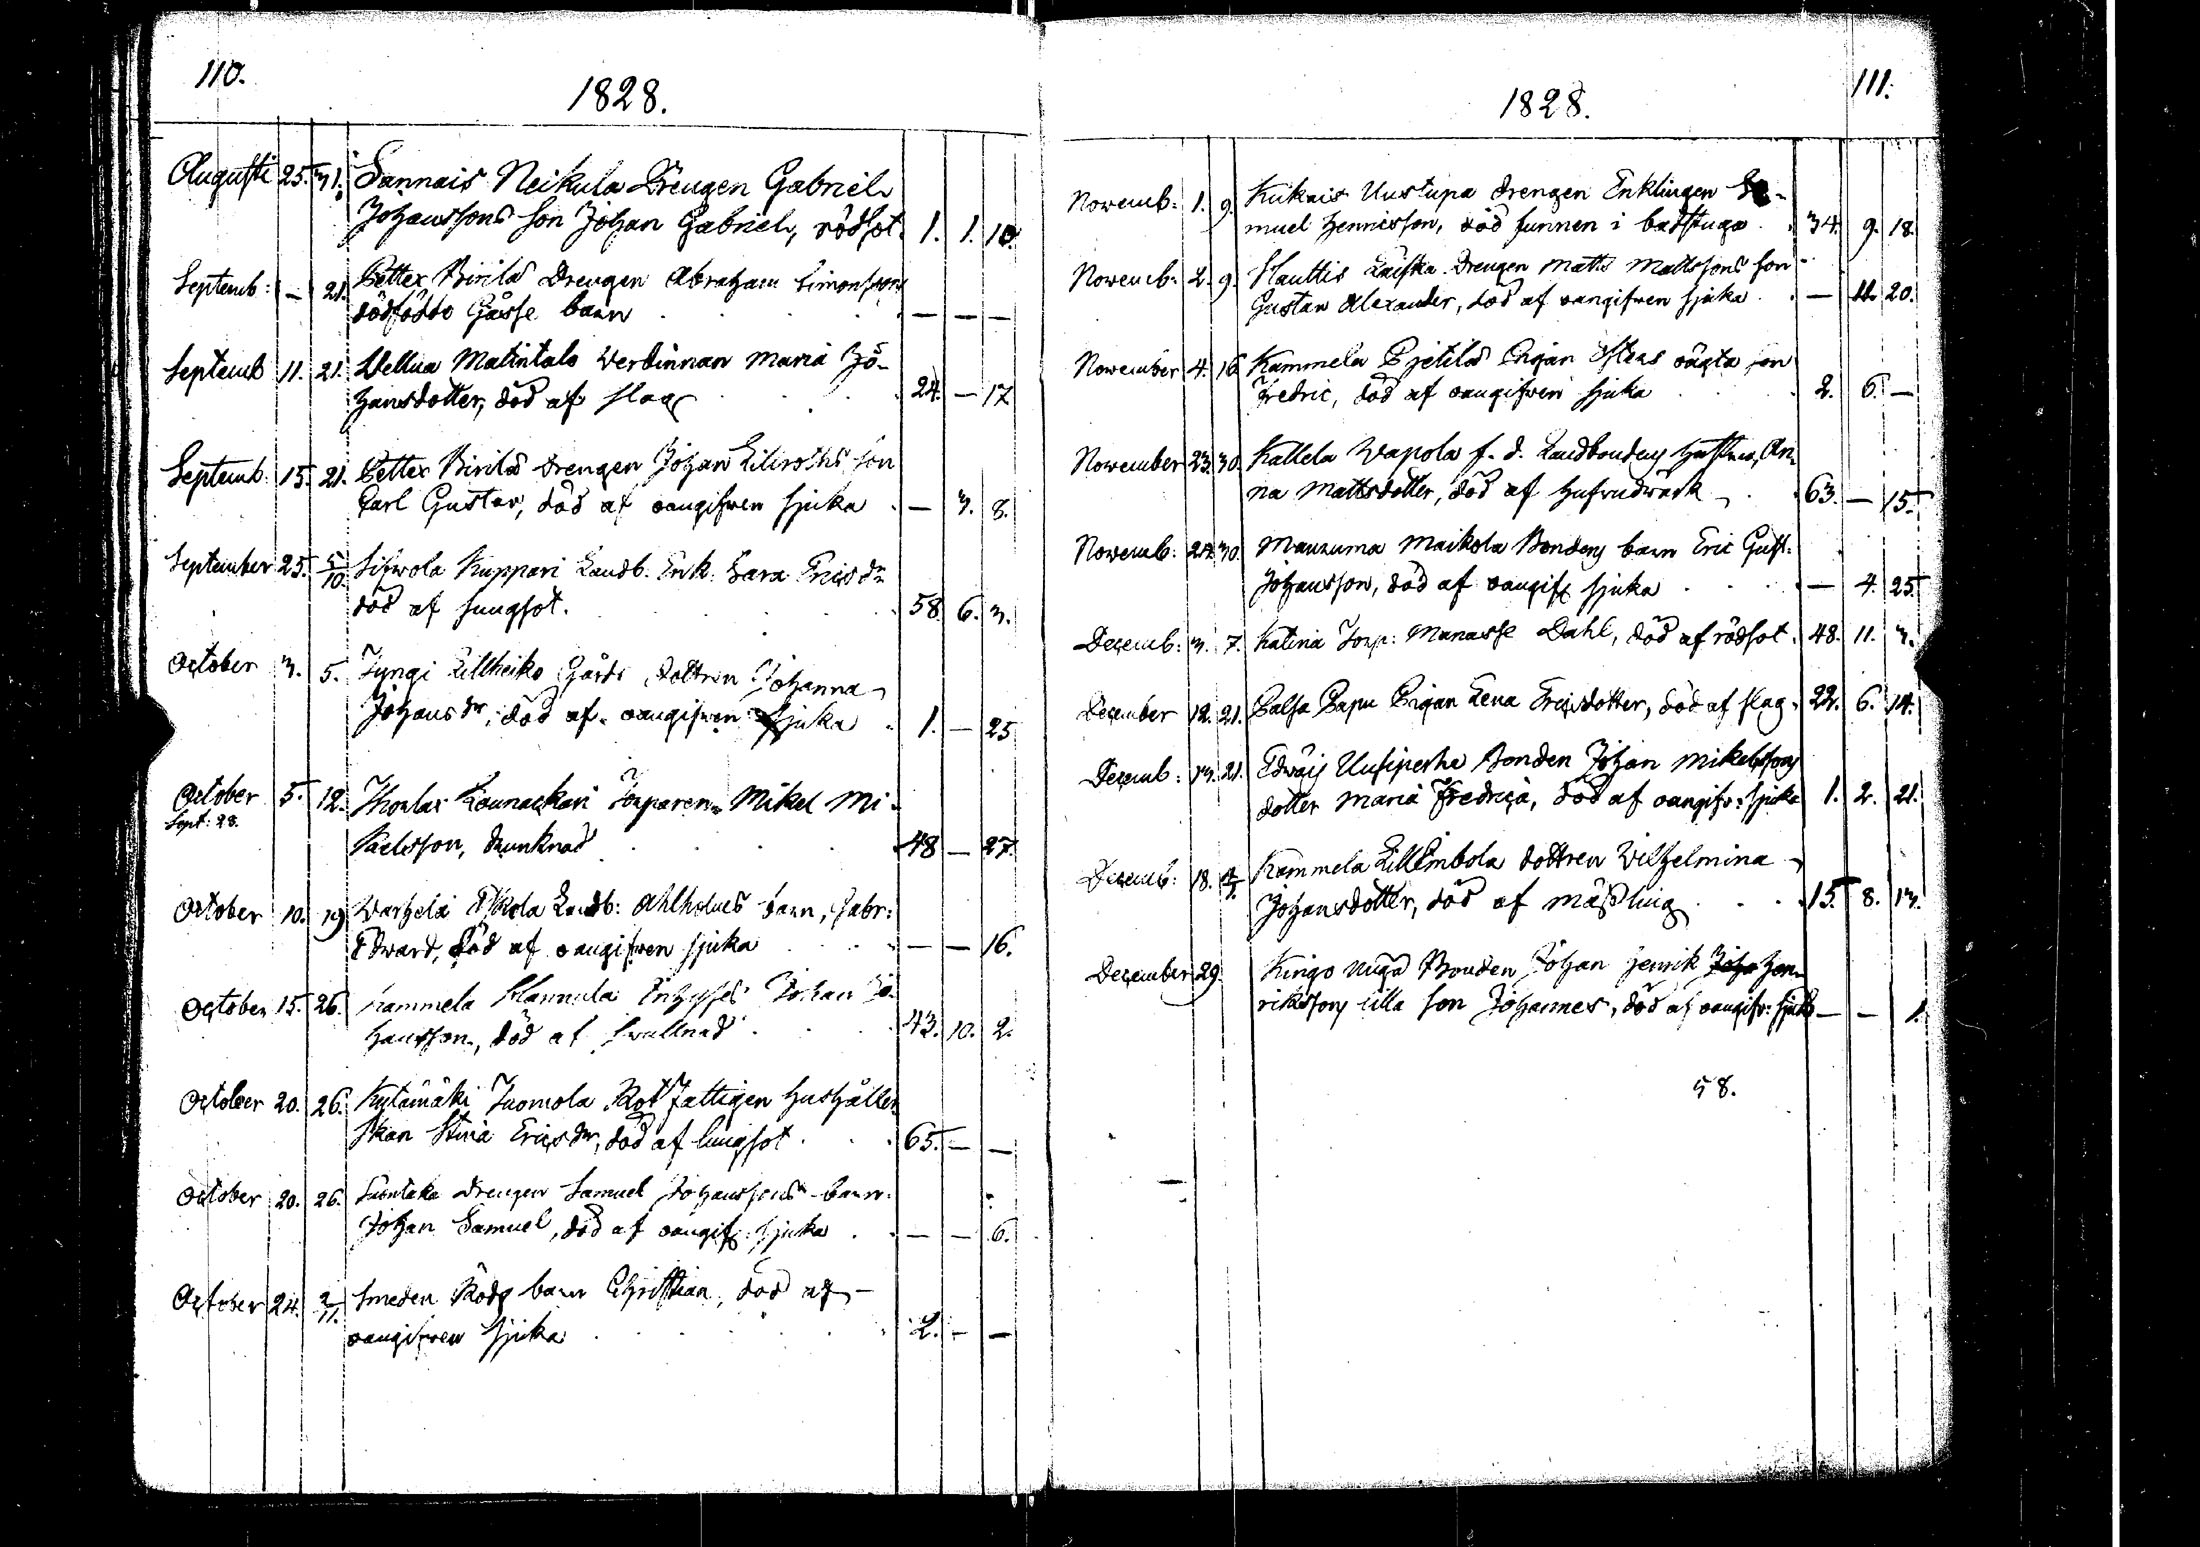 110.
1828.
Augusti 25. 31. Sannais Neikula Drengen Gabriel
Johanssons son Johan Gabriel, rödsot. 1. 1. 10
Septemb: — 21. Petter Birilas Drengen Abraham Simonssons
dödfödde Gåsse barn — — —
Septemb 11. 21. Wellua Matintalo Werdinnan Maria Jo-
hansdotter, död af slag 24. — 17
Septemb. 15. 21. Petter Birilas drengen Johan Liliroths son
Carl Gustav, död af oangifven sjuka — 3. 8.
September 25. 5/10 Sifwola Kuppari Landb. Enk. Sara Ericsdr
död af lungsot. 58 6. 3.
October 3. 5. Jyngi Lillheiko Gårds dottren Johanna
Johansdr, död af oangifven sjuka 1. — 25
October 5. 12.
Sept: 28.
Kounackari Torparen Mikel Mi-
kaelsson, drunknad 48 — 27.
October 10. 19 Warhela Landb: Ahlholms barn, Gabr:
Edward, död af oangifven sjuka — — 16.
October 15. 26. Kammela Hannula Inhyses Johan Jo-
hansson, död af swullnad 43. 10. 2.
October 20. 26. Kytämäki Tuomola Rotfattigen hushåller
skan Stina Ericsdr, död af lungsot 65. — —
October 20. 26. drengen Samuel Johanssons barn
Johan Samuel, död af oangif: sjuka — — 6.
October 24. 2/11. Smeden Rods barn Christian, död af
oangifven sjuka 2. — —
111.
1828.
Novemb: 1. 9. Kukais Uustupa drengen Enklingen Sa-
muel Henricsson, död funnen i badstuga 34. 9. 18.
Novemb. 2. 9. Hauttis drengen Matts Mattssons son
Gustav Alexander, död af oangifven sjuka — 11. 20.
November 4. 16 Kammela Pjetilas Pigan oägta son
Fredric, död af oangifven sjuka 2. 6. —
November 23. 30. Kallela Wapola f. d. Landbondens hustru, An-
na Mattsdotter, död af hufvudwärk 63. — 15.
Novemb: 24. 30. Maunuma Maikola Bondens barn Eric Gust:
Johansson, död af oangif: sjuka — 4. 25.
Decemb: 3. 7. Katina Torp: Manasse Dahl, död af rödsot. 48. 11. 3.
December 12. 21. Palsa Papu Pigan Lena Ericsdotter, död af slag. 22. 6. 14.
Decemb: 13. 21. Edwäis Uusiperha Bonden Johan Mikelssons
dotter Maria Fredrica, död af oangifv: sjuka 1. 2. 21.
Decemb: 18. Kammela Lill Simbola dottren Wilhelmina
Johansdotter, död af mässling 15. 8. 13.
December 29. Kingo Nuga Bonden Johan Henrik Joha Hen-
rikssons lilla son Johannes, död af oangifv: sjuka — — 1.
58.